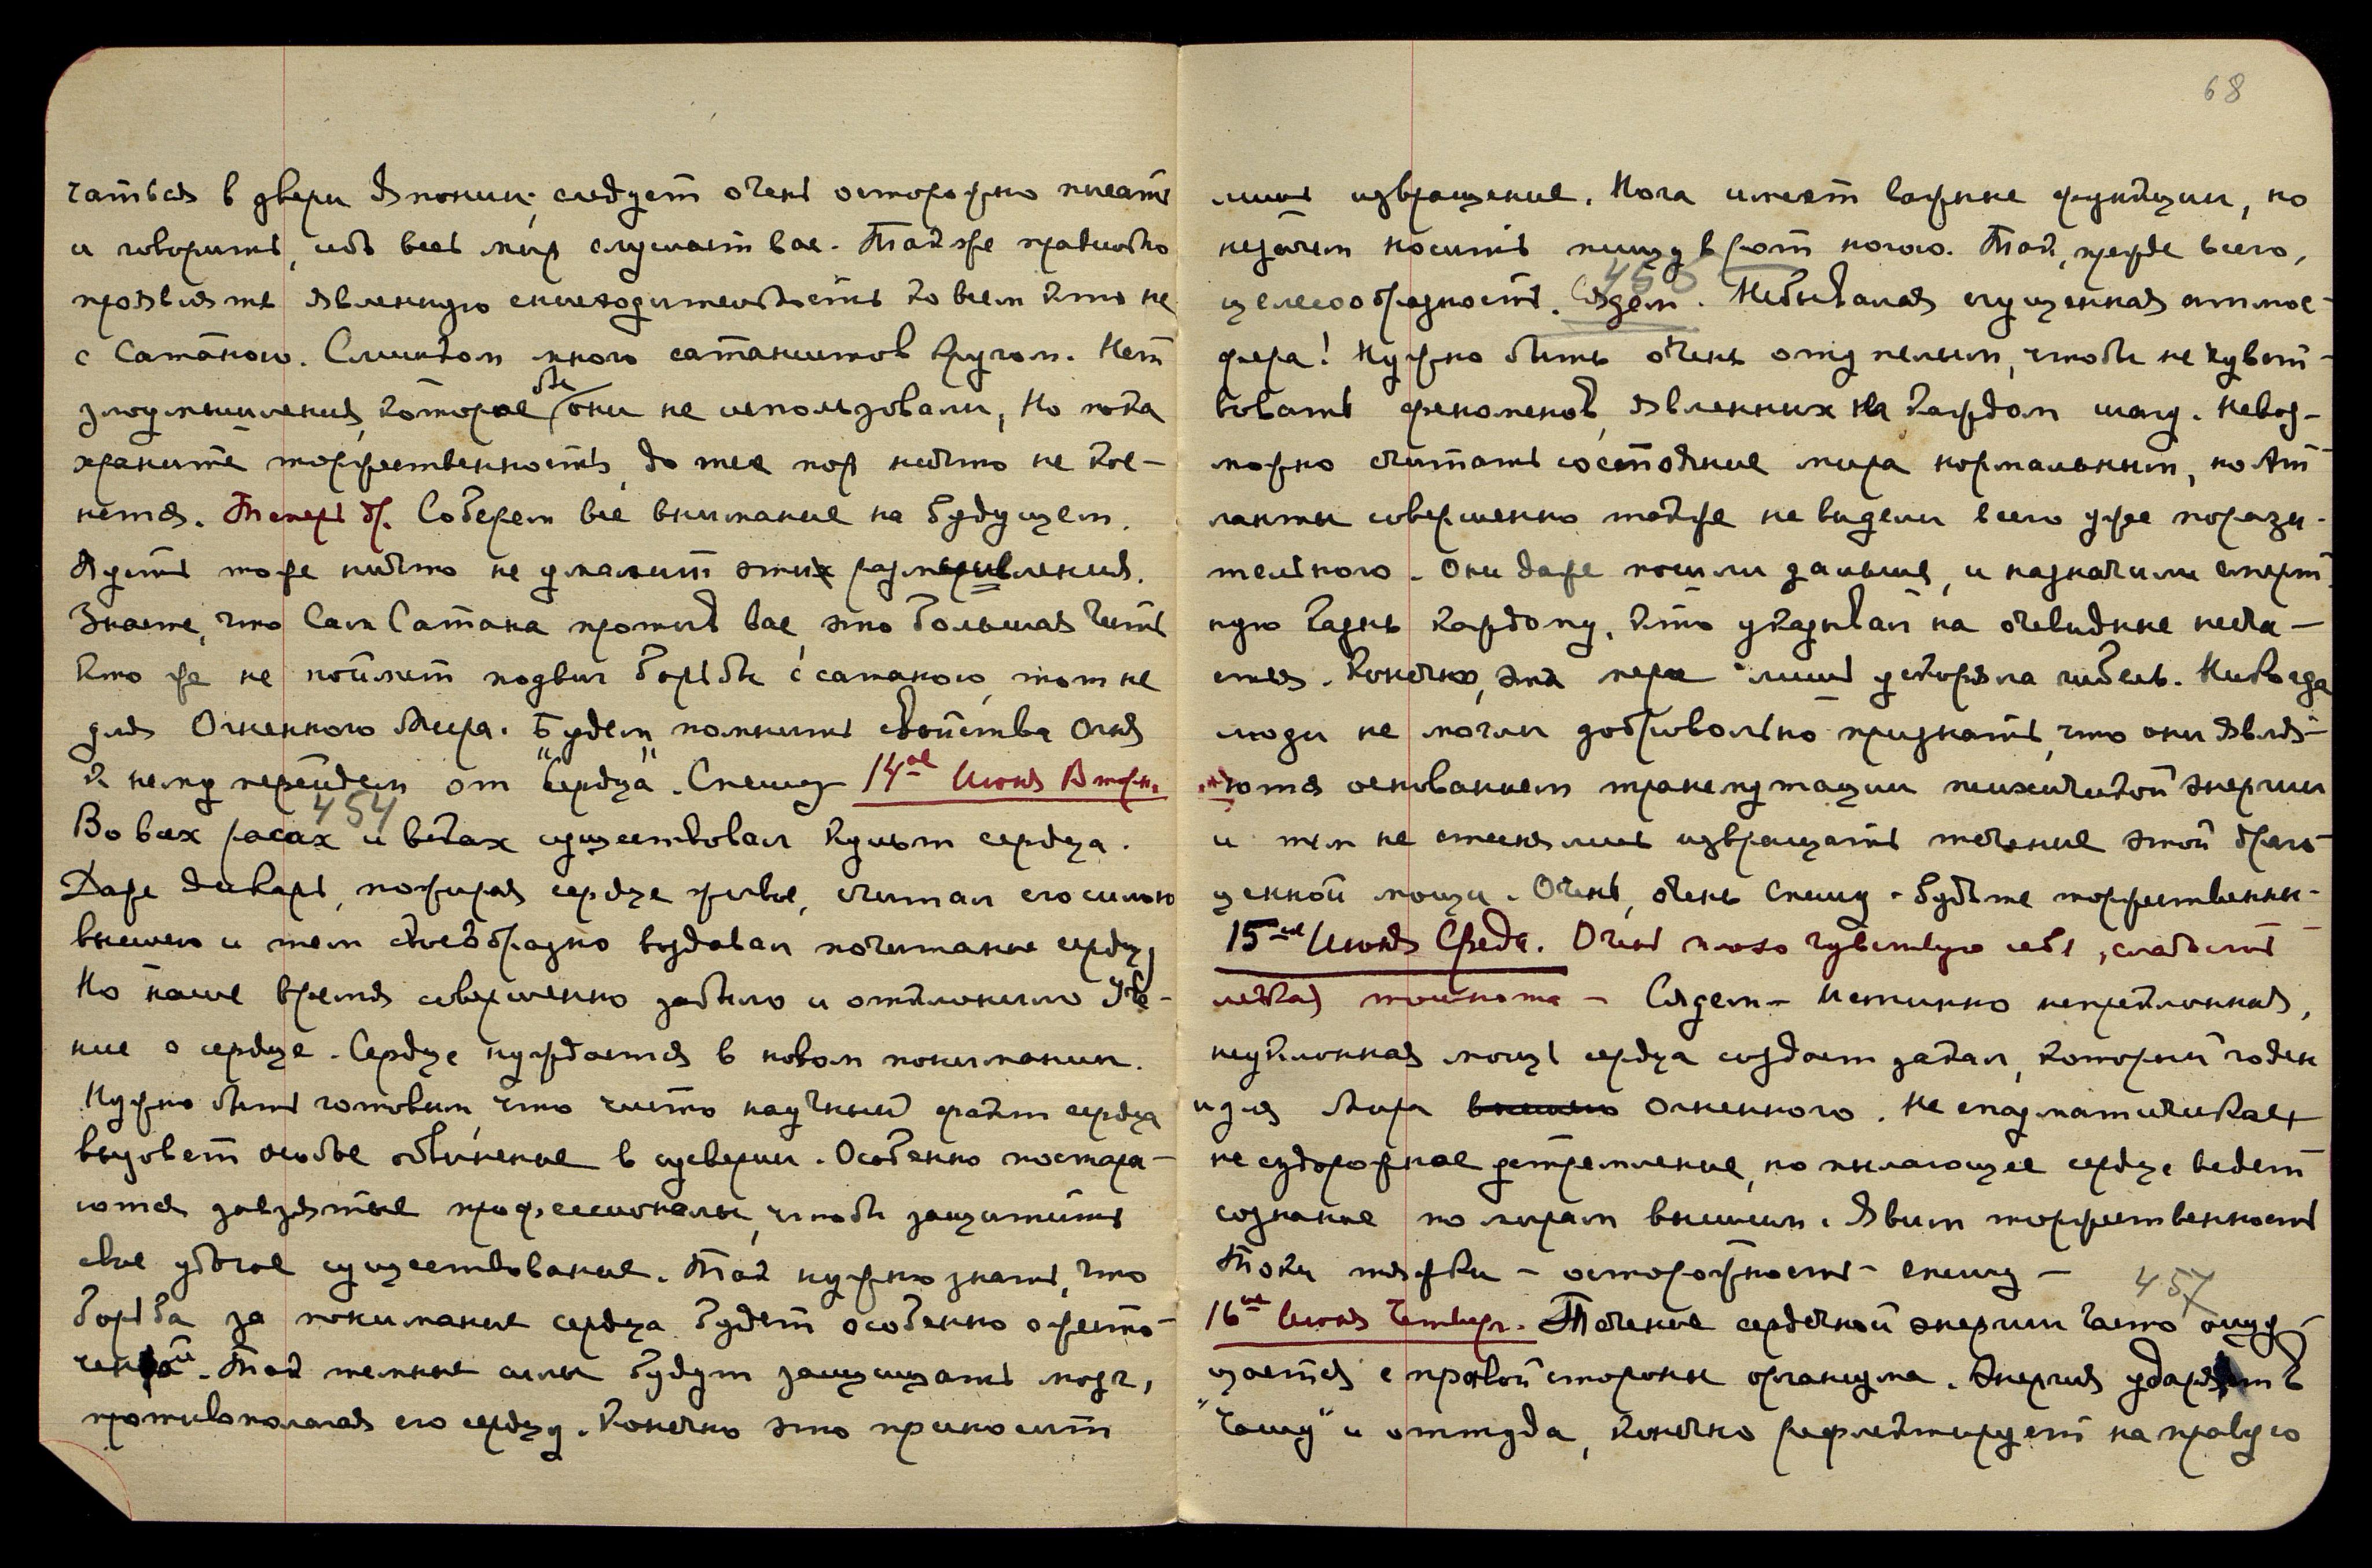 чаться в двери Японии; следует очень осторожно писать
и говорить, ибо весь мир слушает вас. Также правильно
проявлять явленную снисходительность ко всем кто не
с Сатаною. Слишком много сатанистов кругом. Нет
злоумышления, которое бы они не использовали, Но пока
храните торжественность, до тех пор ничто не кос-
нется. Теперь др. Соберем все внимание на будущем.
Пусть тоже ничто не умалит этих размышления.
Знаете, что Сам Сатана против вас, это большая честь
Кто же не поймет подвиг борьбы с сатаною, тот не
для Огненного Мира. Будем помнить свойства Огня
К нему перейдем от "Сердца". Спешу 14ое Июня Вторн.
454
Во всех расах и веках существовал культ сердца.
Даже дикарь, пожирая сердце живое, считал его силою
высшею и тем своеобразно воздавал почитание сердцу,
Но наше время совершенно забыло и отклонило Уче-
ние о сердце. Сердце нуждается в новом понимании.
Нужно быть готовым, что чисто научный факт сердца
вызовет особые обвинение в суеверии. Особенно постара-
ются завзятые профессионалы, чтобы защитить
свое убогое существование. Так нужно знать, что
борьба за понимание сердца будет особенно ожесто-
ченной. Так темные силы будут защищать мозг,
противополагая его сердцу. Конечно это приносит
68
лишь извращение. Нога имеет важные функции, но
незачем носить пищу в рот ногою. Так, прежде всего,
целесообразность. Сядем. Небывалая сгущенная атмос-
фера! Нужно быть очень отупелым, чтобы не чувст-
вовать феноменов, явленных на каждом шагу. Невоз-
можно считать состояние мира нормальным, но Ат-
ланты совершенно также не видели всего уже порази-
тельного. Они даже пошли дальше, и назначили смерт-
ную казнь каждому, кто указывал на очевидные несча-
стия. Конечно, эта мера лишь ускоряла гибель. Никогда
люди не могли добровольно признать, что они явля-
ются основанием трансмутации психической энергии
и тем не стеснялись извращать течение этой драго-
ценной мощи. Очень, очень Спешу. Будьте торжественны.
15ое Июня Среда. Очень плохо чувствую себя, слабость
легкая тошнота – Сядем – Истинно непреклонная,
неуклонная мощь сердца создает закал, который годен
и для Мира высшего Огненного. Не спазматическое,
не судорожное устремление, но пылающее сердце ведет
сознание по мирам высшим. Явим торжественность
Токи тяжки – осторожность – спешу –
457
16ое Июня Четверг. Течение сердечной энергии часто ощу-
щается с правой стороны организма. Энергия ударяет в
"Чашу" и оттуда, конечно рефлектирует на правую